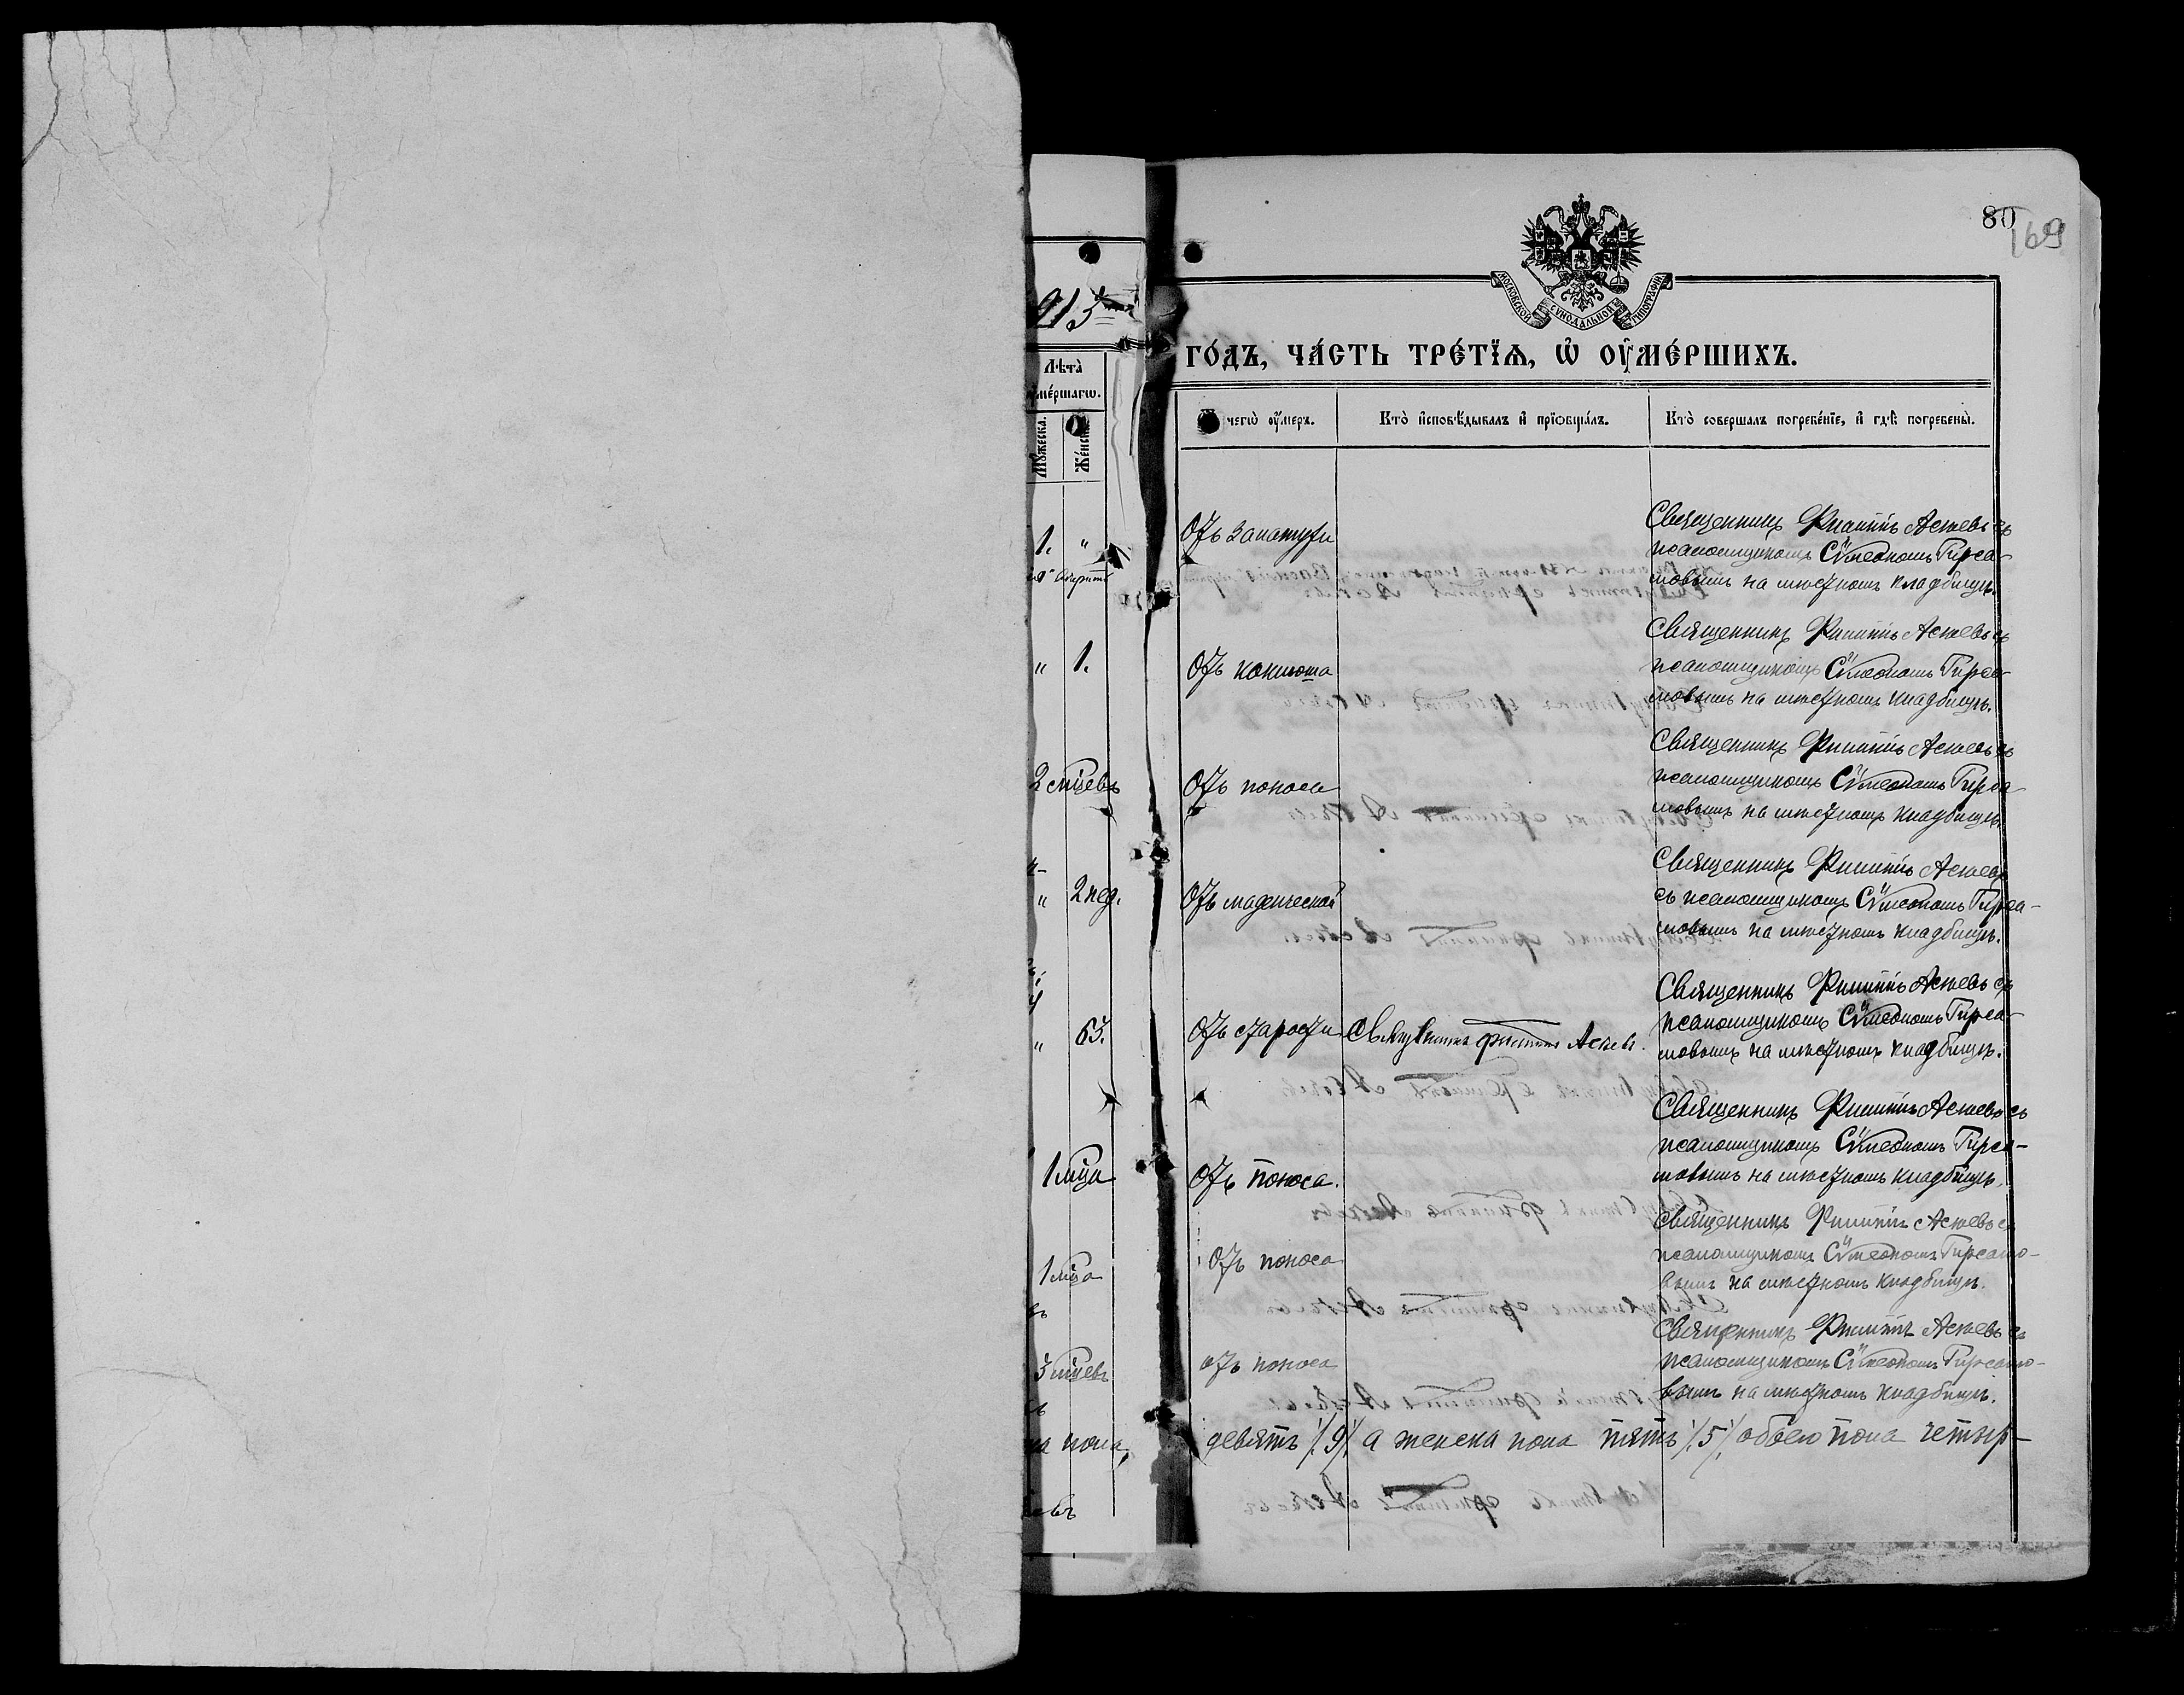 80
169
913
МОСКОВСКОЙ СѴНОДАЛЬНОЙ ТИПОГРАФІИ
го́дъ, ча́сть тре́тїѧ, ѡ҆ ᲂу҆ме́ршихъ.
Лѣта̀
ме́ршагѡ.
Мꙋ́жеска.
Же́нска.
чегѡ̀ ᲂу҆́меръ.
Кто̀ и҆сповѣ́дывалъ и҆ прїѡбща́лъ.
Кто̀ соверша́лъ погребе́нїе, и҆ гдѣ̀ погребены̀.
1. "
Отъ
Священникъ Филиппъ Аскевъ съ
псаломщикомъ Сѵмеономъ Гирса-
мовымъ на мѣстномъ кладбищѣ.
" 1.
Отъ коклюша
Священникъ Филиппъ Аскевъ съ
псаломщикомъ Сѵмеономъ Гирса-
мовымъ на мѣстномъ кладбищѣ.
2 мцевъ
Отъ поноса
Священникъ Филиппъ Аскевъ съ
псаломщикомъ Сѵмеономъ Гирса-
мовымъ на мѣстномъ кладбищѣ.
" 2 нед.
Отъ младенческой
Священникъ Филиппъ Аскевъ
съ псаломщикомъ Сѵмеономъ Гирса-
мовымъ на мѣстномъ кладбищѣ.
" 63.
Отъ старости
Священникъ Филиппъ Аскевъ.
Священникъ Филиппъ Аскевъ съ
псаломщикомъ Сѵмеономъ Гирса-
мовымъ на мѣстномъ кладбищѣ.
1 мца
Отъ поноса.
Священникъ Филиппъ Аскевъ съ
псаломщикомъ Сѵмеономъ Гирса-
мовымъ на мѣстномъ кладбищѣ.
1 мца
Отъ поноса
Священникъ Филиппъ Аскевъ съ
псаломщикомъ Сѵмеономъ Гирсамо-
вымъ на мѣстномъ кладбищѣ.
3 мцевъ
отъ поноса
Священникъ Филиппъ Аскевъ съ
псаломщикомъ Сѵмеономъ Гирсамо-
вымъ на мѣстномъ кладбищѣ.
на пола, девять /9/ а женска пола пять /5/ обоего пола четыр-